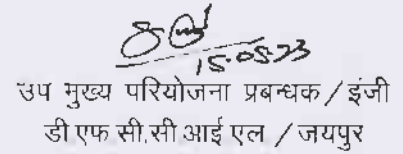 15.05.23
उप मुख्य परियोजना प्रबन्धक / इंजी
डी एफ सी.सी आई एल / जयपुर